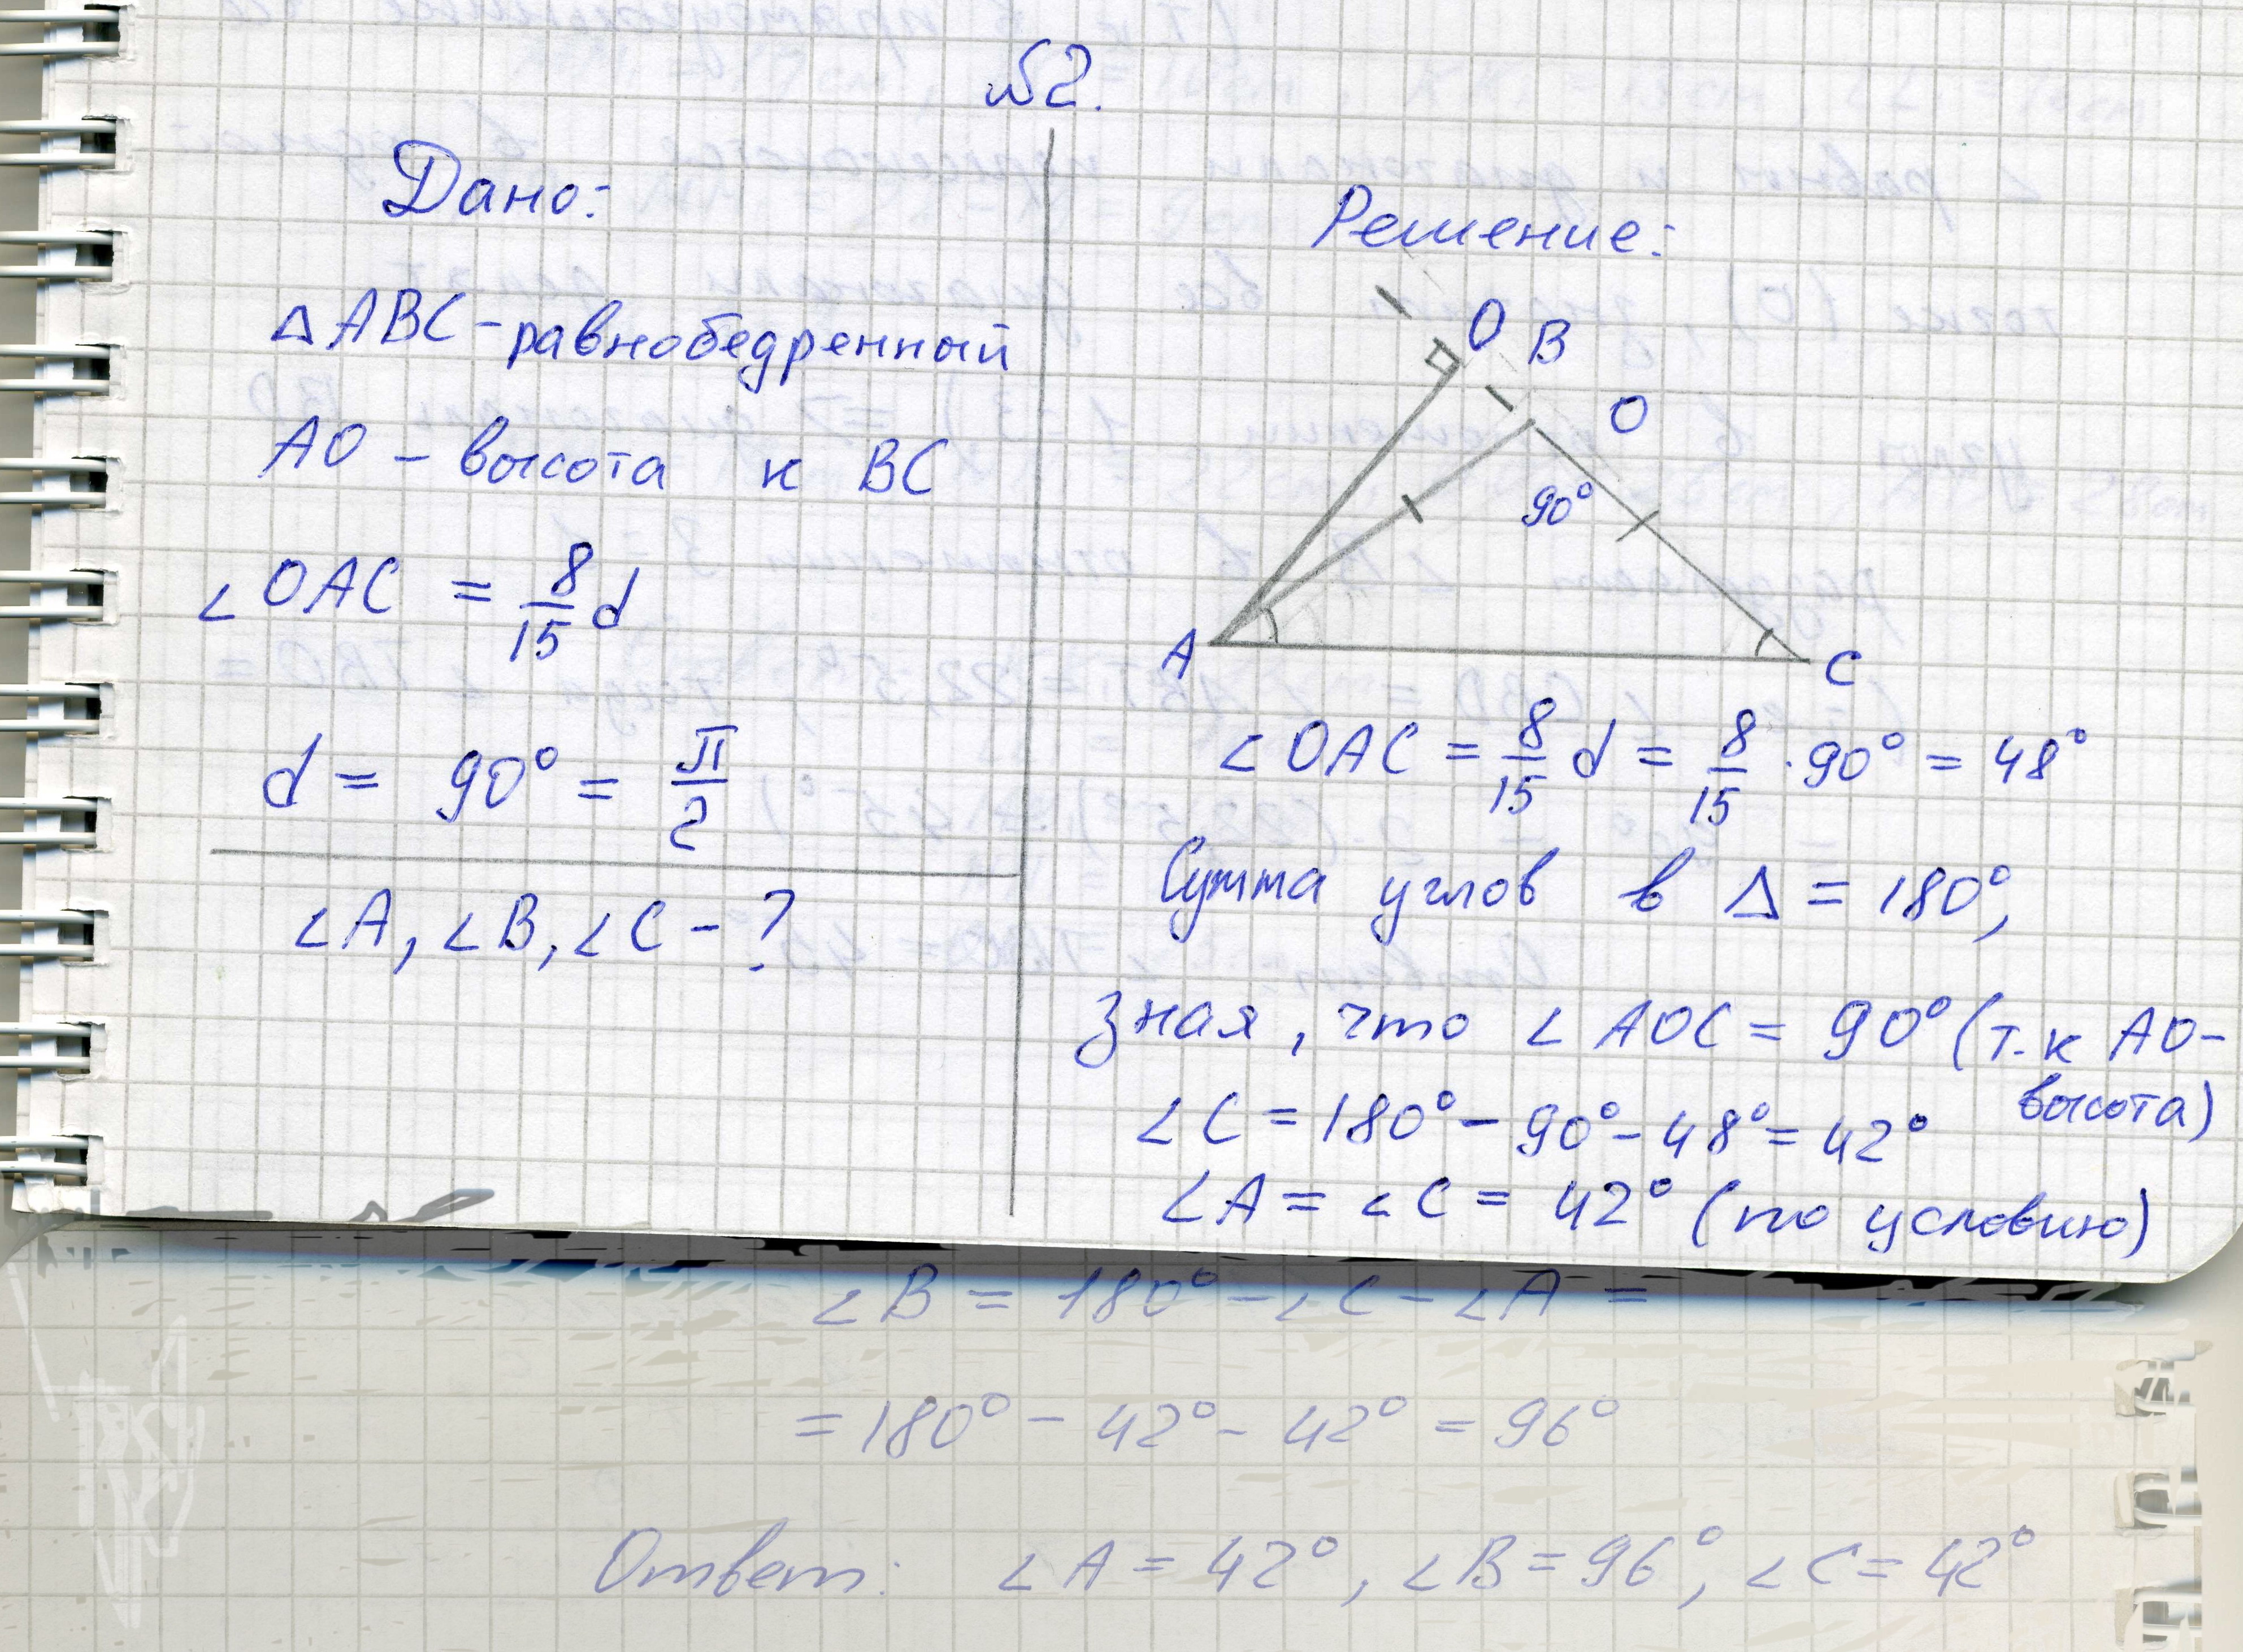 №2.
Дано:
△ABC - равнобедренный
AO - высота к BC
∠OAC = 8/15 d
d = 90° = π/2
∠A, ∠B, ∠C - ?
Решение:
O B
O
90°
A
C
∠OAC = 8/15 d = 8/15 · 90° = 48°
Сумма углов в △ = 180°,
зная, что ∠AOC = 90° (т.к AO -
высота)
∠C = 180° - 90° - 48° = 42°
∠A = ∠C = 42° (по условию)
∠B = 180° - ∠C - ∠A =
= 180° - 42° - 42° = 96°
Ответ: ∠A = 42°, ∠B = 96°, ∠C = 42°